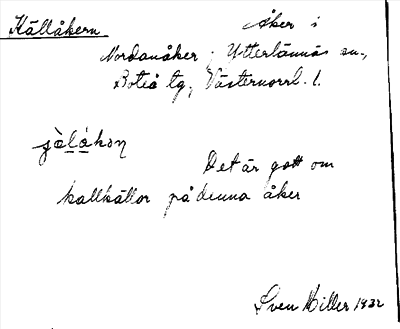 Källåkern Åker i
Nordanåker, Ytterlännäs sn.,
Boteå tg, Västernorrl. l.
Det är gott om
kallkällor på denna åker
Sven Hiller 1932